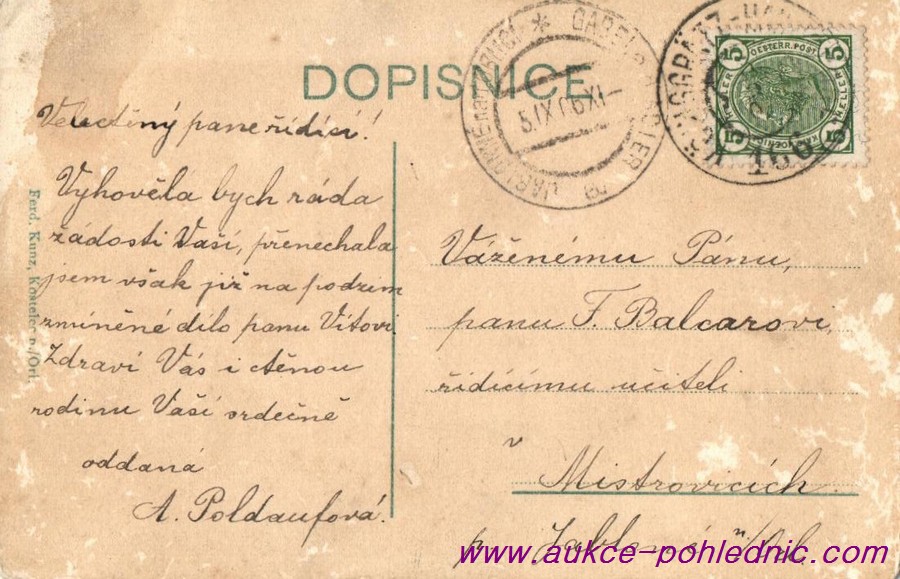 DOPISNICE
Velectěný pane řídící!
Vyhověla bych ráda
žádosti Vaší, přenechala
jsem však již na podzim
zmíněné dílo panu Vítovi.
Zdraví Vás i ctěnou
rodinu Vaší srdečně
oddaná
A. Poldaufová.
Ferd. Kunz, Kostelec n./Orl.
GABEL
5 IX 06 XI
5 OESTERR. POST. 5
5 5
Váženému Pánu,
panu F. Balcarovi,
řídícímu učiteli
v
Mistrovicích
p. Jablonné n/Orl.
www.aukce-pohlednic.com